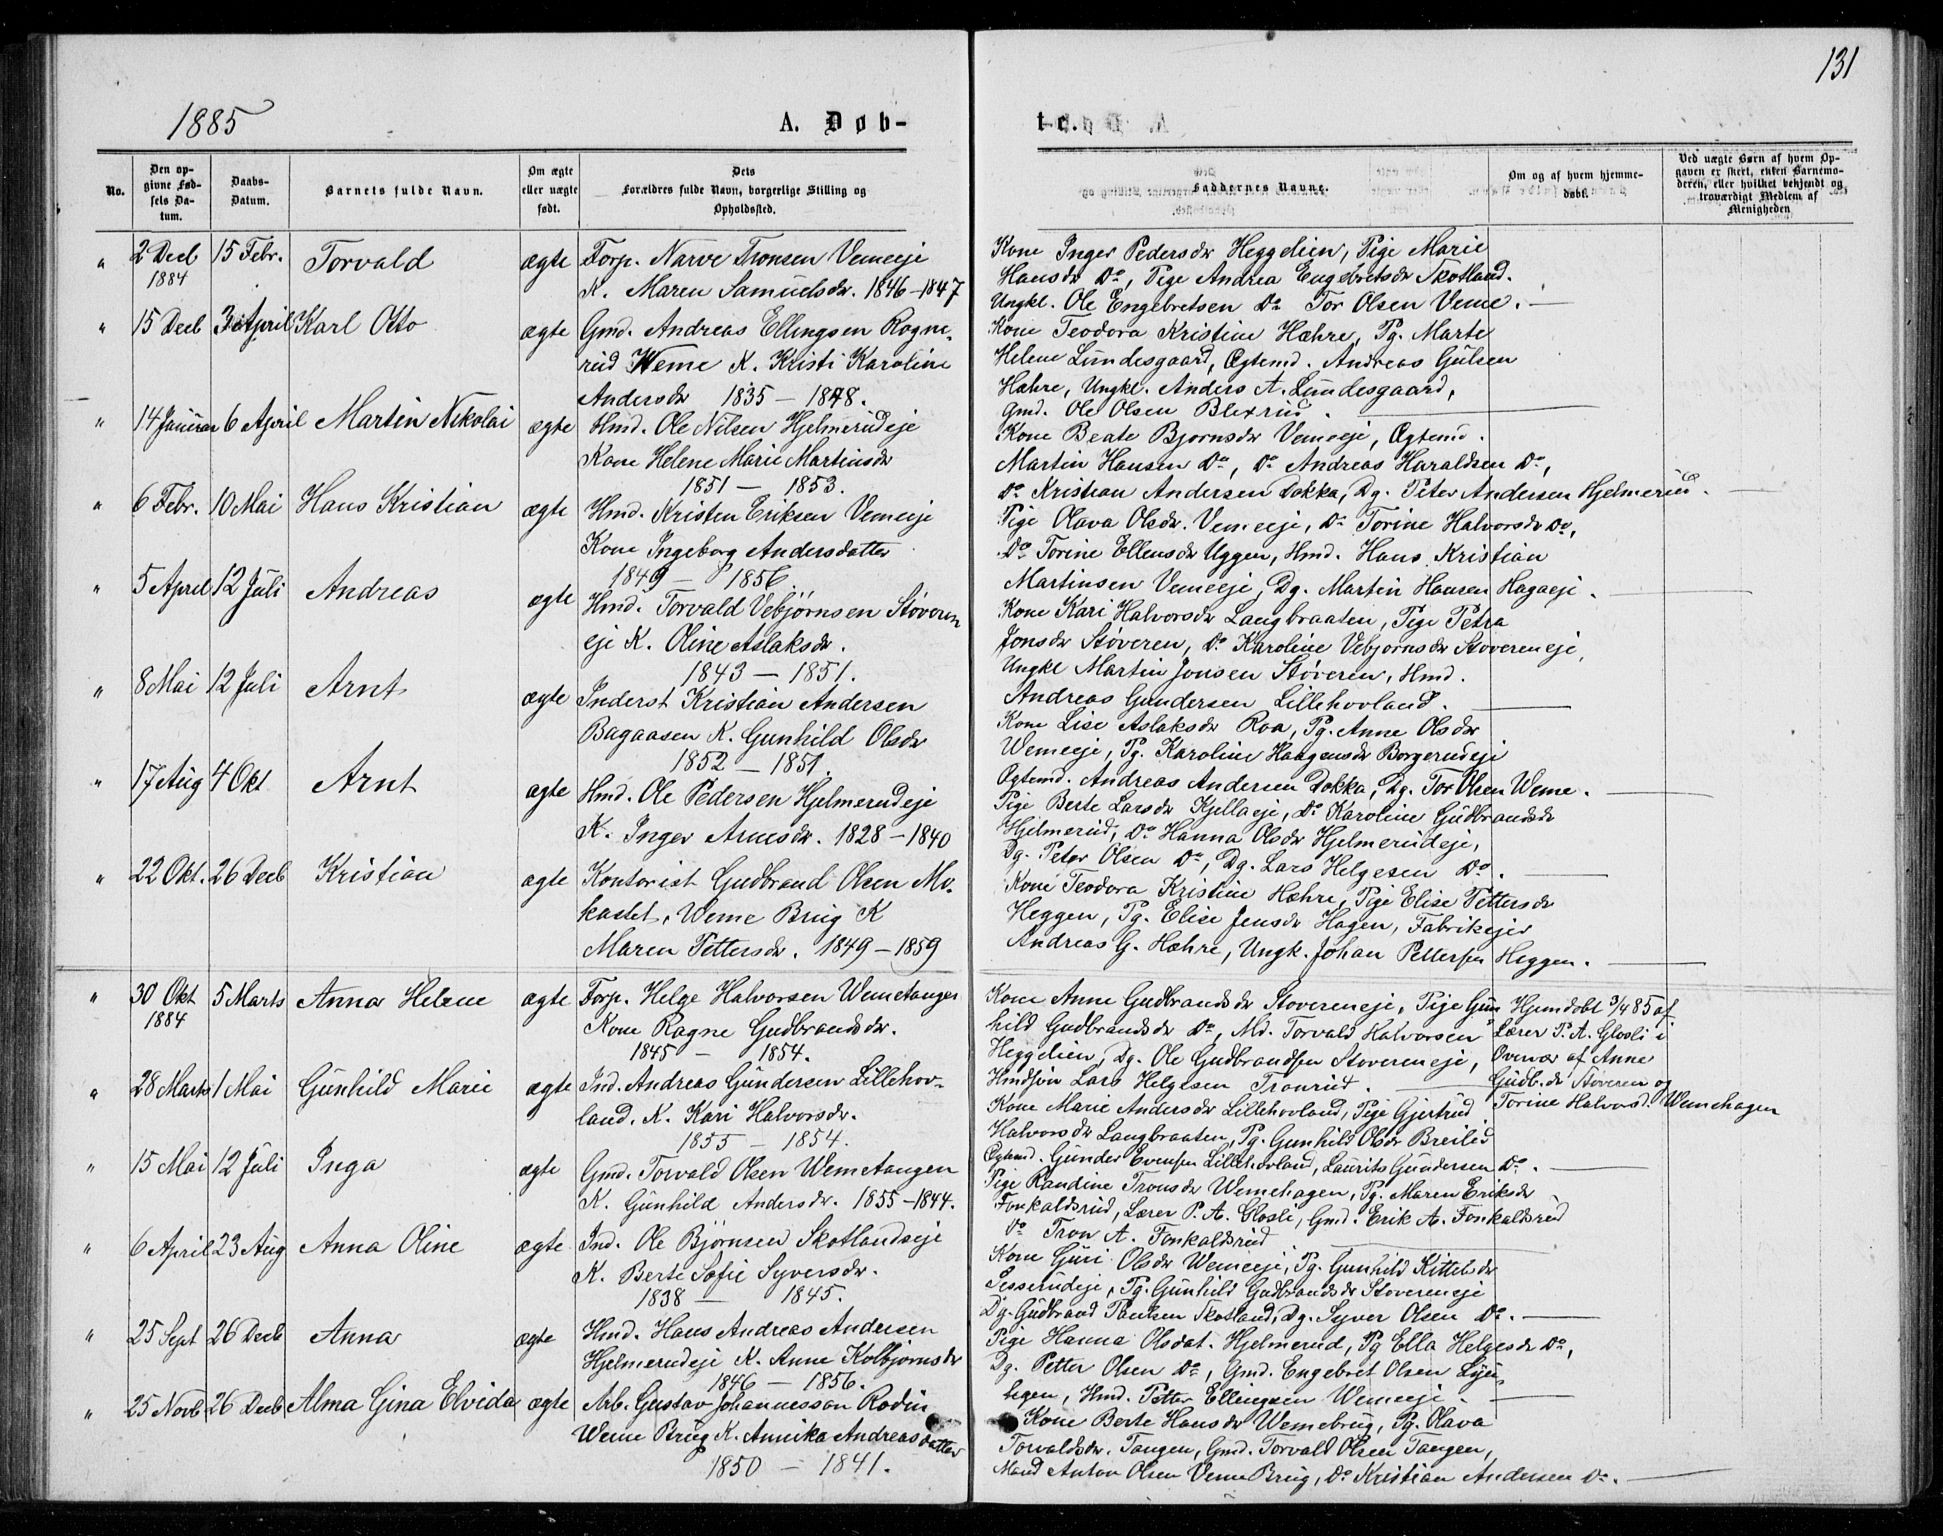 131
1885
A. Døb-
te.
No.
Den op-
givne Fød-
sels Da-
tum.
Daabs-
Datum.
Barnets fulde Navn.
Om ægte
eller uægte
født.
Dets
Forældres fulde Navn, borgerlige Stilling og
Opholdssted.
Faddernes Navne.
Om og af hvem hjemme-
døbt.
Ved uægte Børn af hvem Op-
gaven er skeet, enten Barnemo-
deren, eller hvilket bekjendt og
troværdigt Medlem af
Menigheden
" 2 Decb 15 Febr. Torvald ægte Forp. Narve Tronsen Vemeeje
1884 K. Maren Samuelsdr. 1846-1847
" 15 Decb 3 April Karl Otto ægte Gmd. Andreas Ellingsen Rogne-
rud Weme K. Kristi Karoline
Andersdr 1835 - 1848.
" 14 Januar 6 April Martin Nikolai ægte Hmd. Ole Nilsen Hjelmerudeje
Kone Helene Marie Martinsdr
1851 - 1853.
" 6 Febr. 10 Mai Hans Kristian ægte Hmd. Kristen Eriksen Vemeeje
Kone Ingeborg Andersdatter
1849 - 1856.
" 5 April 12 Juli Andreas ægte Hmd. Torvald Vebjørnsen Støveren
eje K. Oline Aslaksdr.
1843 - 1851.
" 8 Mai 12 Juli Arnt ægte Inderst Kristian Andersen
Bagaasen K. Gunhild Olsdr
1852 - 1851.
" 17 Aug 4 Okt Arnt ægte Hmd. Ole Pedersen Hjelmerudeje
K. Inger Arnesdr. 1828 - 1840
" 22 Okt. 26 Decb Kristian ægte Kontorist Gudbrand Olsen Mo-
kastet, Weme Brug K
Maren Pettersdr. 1849 - 1859
" 30 Okt 5 Marts Anna Helene ægte Forp. Helge Halvorsen Wemetangen
1884 Kone Ragne Gudbrandsdr.
1845 - 1854.
" 28 Marts 1 Mai Gunhild Marie ægte Ind. Andreas Gundersen Lillehov-
land. K. Kari Halvorsdr.
1855 - 1854.
" 15 Mai 12 Juli Inga ægte Gmd. Torvald Olsen Wemetangen
K. Gunhild Andersdr. 1855-1844.
" 6 April 23 Aug Anna Oline ægte Ind. Ole Bjørnsen Skotlandseje
K. Berte Sofie Syversdr.
1838 - 1845.
" 25 Sept 26 Decb Anna ægte Hmd. Hans Andreas Andersen
Hjelmerudeje K. Anne Kolbjørnsdr
1846 - 1856.
" 25 Novb 26 Decb Alma Gina Elvida ægte Arb. Gustav Johannesson Rodin
Weme Brug K. Annika Andreasdatter
1850 - 1841.
Kone Inger Pedersdr Heggelien, Pige Marie
Hansdr Do, Pige Andrea Engebretsdr Skotland.
Ungkl. Ole Engebretsen Do Tor Olsen Veme.
Kone Teodora Kristine Hæhre, Pg. Marte
Helene Lundesgaard, Ægtemd. Andreas Gulsen
Hæhre, Ungkl. Anders A. Lundesgaard,
Gmd. Ole Olsen Blexrud.
Kone Beate Bjørnsdr Vemeeje, Ægtemd.
Martin Hansen Do, Do Andreas Haraldsen Do,
Do Kristian Andersen Dokka, Dg. Peter Andersen Hjelmerud.
Pige Olava Olsdr. Vemeeje, Do Torine Halvorsdr Do,
Do Torine Ellensdr Uggen, Hmd. Hans Kristian
Martinsen Vemeeje, Dg. Martin Hansen Hagaeje.
Kone Kari Halvorsdr Langbraaten, Pige Petra
Jonsdr Støveren, Do Karoline Vebjørnsdr Støvereneje,
Ungkl Martin Jonsen Støveren, Hmd.
Andreas Gundersen Lillehovland.
Kone Lise Aslaksdr Roa, Pg. Anne Olsdr
Wemeeje, Pg. Karoline Haagensdr Borgerudeje
Ægtemd. Andreas Andersen Dokka, Dg. Tor Olsen Weme.
Pige Berte Larsdr Kjellaeje, Do Karoline Gudbrandsdr
Hjelmerud, Do Hanna Olsdr Hjelmerudeje,
Dg. Peter Olsen Do, Dg. Lars Helgesen Do.
Kone Teodora Kristine Hæhre, Pige Elise Pettersdr
Heggen, Pg. Elise Jensdr Hagen, Fabrikejer
Andreas G. Hæhre, Ungk. Johan Pettersen Heggen.
Kone Anne Gudbrandsdr Støvereneje, Pige Gun
hild Gudbrandsdr Do, Md. Torvald Halvorsen
Heggelien, Dg. Ole Gudbrandsen Støvereneje,
Hmdsøn Lars Helgesen Tronrud.
Hjemdøbt 3/4 85 af
Lærer P. A. Glosli i
Overvær af Anne
Gudb.dr Støveren og
Torine Halvorsd. Wemehagen
Kone Marie Andersdr Lillehovland, Pige Gjertrud
Halvorsdr Langbraaten, Pg. Gunhild Olsdr Breilid
Ægtemd. Gunder Evensen Lillehovland, Laurits Gundersen Do.
Pige Randine Tronsdr Wemehagen, Pg. Maren Eriksdr
Fonkaldsrud, Lærer P. A. Glosli, Gmd. Erik A. Fonkaldsrud
Do Tron A. Fonkaldsrud
Kone Guri Olsdr Wemeeje, Pg. Gunhild Kittelsdr
Sesserudeje, Pg. Gunhild Gudbrandsdr Støvereneje
Dg. Gudbrand Paulsen Skotland, Dg. Syver Olsen Do.
Pige Hanna Olsdat. Hjelmerud, Pg Ella Helgesdr Do,
Dg. Petter Olsen Do, Gmd. Engebret Olsen
Hmd. Petter Ellingsen Wemeeje.
Kone Berte Hansdr Wemebrug, Pg. Olava
Torvaldsdr. Tangen, Gmd. Torvald Olsen Tangen,
Mand Anton Olsen Veme Brug, Do Kristian Andersen Do.